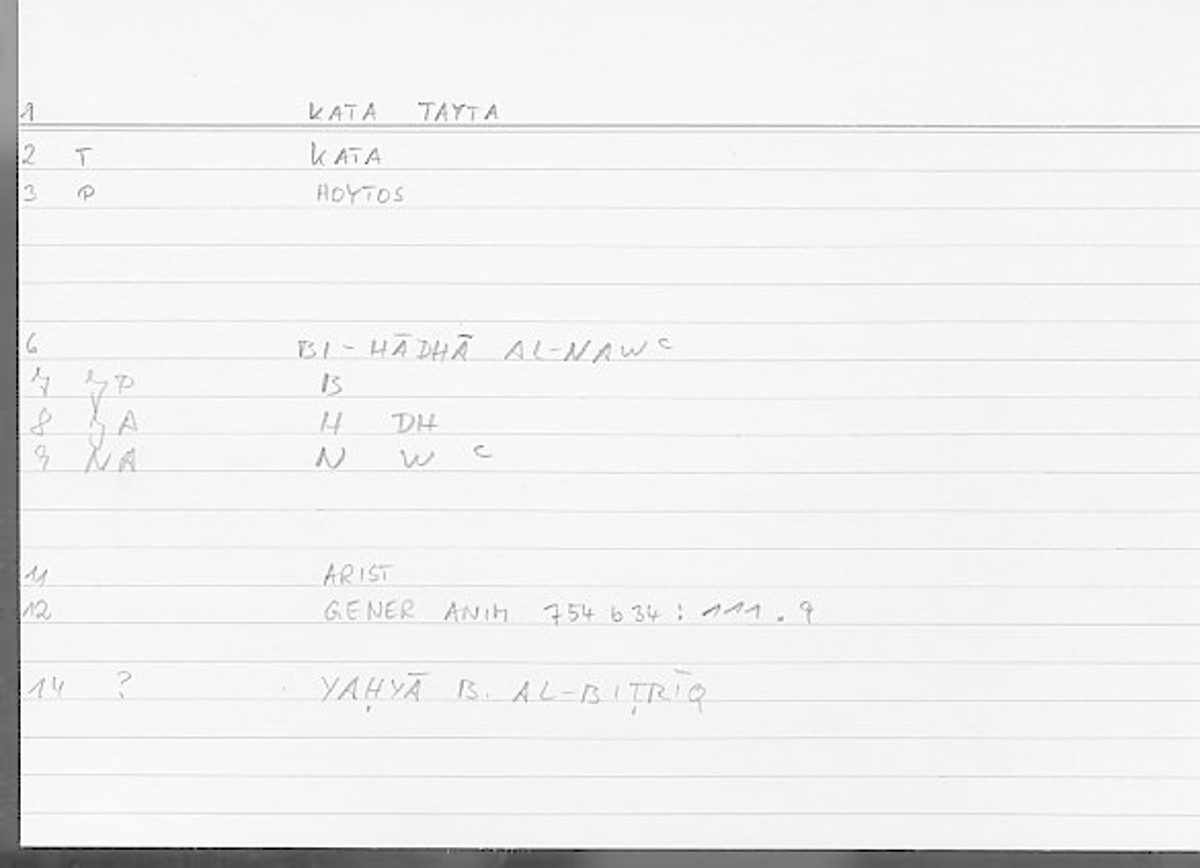 1 KATA TAYTA
2 T KATA
3 P HOYTOS
6 BI-HĀDHĀ AL-NAWᶜ
7 P B
8 A H DH
9 NA N W ᶜ
11 ARIST
12 GENER ANIM 754 b 34 : 111.9
14 ? YAḤYĀ B. AL-BIṬRĪQ